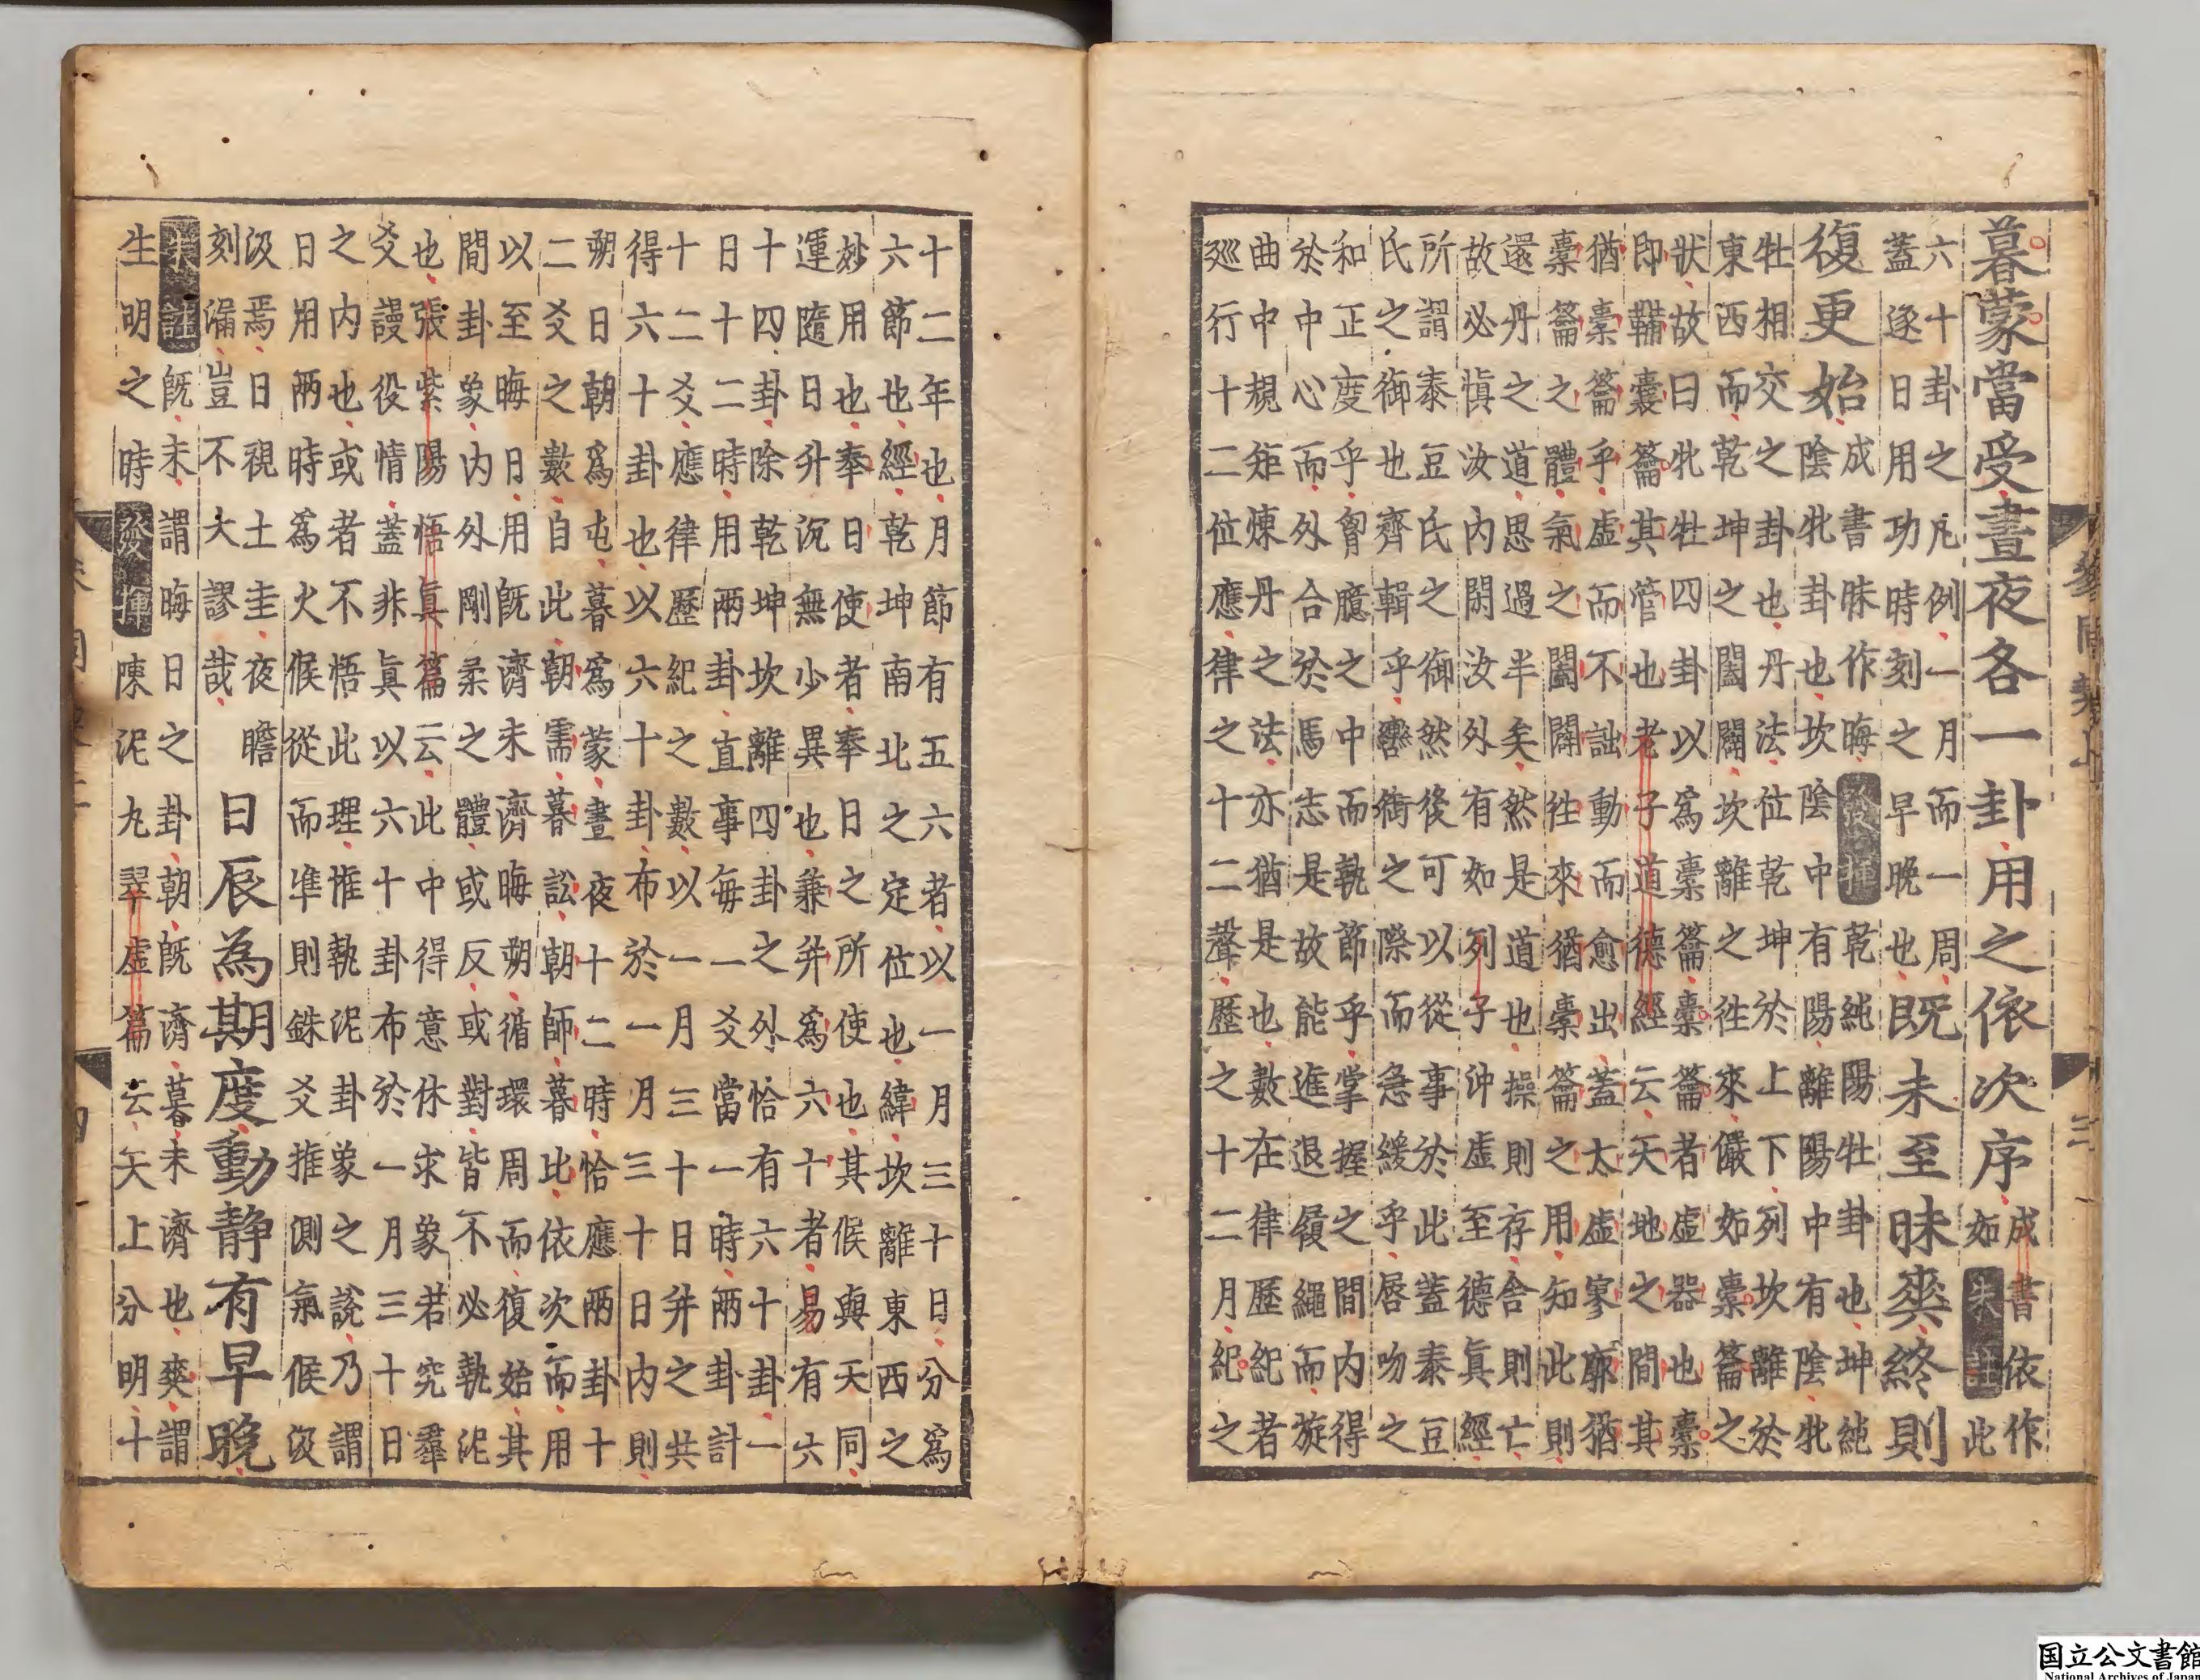 暮蒙當受晝夜各一卦用之依次序
成書依作
如朱註此
六十卦之凡例一月而一周
蓋逐日用功時刻之早晚也
既未至昧爽終則
復更始
成書昧作晦發揮乾純陽牡卦也坤純
陰牝卦也坎陰中有陽離陽中有陰牝
牡相交之卦也丹法位乾坤於上下列坎離於
東西而乾坤之闔闢坎離之往來儼如橐籥之
狀故曰牝牡四卦以爲橐籥橐籥者虛器也橐
即鞴囊籥其管也老子道德經云天地之間其
猶橐籥乎虛而不詘動而愈出蓋太虛寥廓猶
橐籥之體氣之闔闢往來猶橐籥之用知此則
還丹之道思過半矣然是道也操則存舍則亡
故必愼汝內閑汝外有如列子沖虛至德眞經
所謂泰豆氏之御然後可以從事於此蓋泰豆
氏之御也齊輯乎轡銜之際而急緩乎唇吻之
和正度乎胷臆之中而執節乎掌握之間內得
於中心而外合於馬志是故能進退履繩而旋
曲中規矩煉丹之法亦猶是也數在律歷紀者
巡行十二位應律之十二聲歷之十二月紀之
參同契上 三
十二年也月節有五六者以一月三十日分爲
六節也經乾坤南北之定位也緯坎離東西之
妙用也奉日使者奉日之所使也其候與天同
運隨日升沉無少異也兼并爲六十者易有六
十四卦除乾坤坎離四卦之外恰有六十卦一
日十二時用兩卦直事每一爻當一時兩卦計
十二爻應律歷紀之數以一月三十日并之共
得六十卦也以六十卦布於一月三十日內則
朔日朝爲屯暮爲蒙晝夜十二時恰應兩卦十
二爻之數自此朝需暮訟朝師暮比依次而用
以至晦日用既濟未濟晦朔循環周而復始其
間卦象內外剛柔之體或反或對皆不必執泥
也張紫陽悟眞篇云此中得意休求象若究羣
爻謾役情蓋非眞以六十卦布於一月三十日
之內也或者不悟此理惟執泥卦象之說乃謂
日用兩時爲火候從而準則銖爻推測氣候汲
汲焉日視土圭夜瞻
刻漏豈不大謬哉
日辰為期度動靜有早晚
朱註既未謂晦日之卦朝既濟暮未濟也爽謂
生明之時發揮陳泥丸翠虛篇云天上分明十
国立公文書館
National Archives of Japan